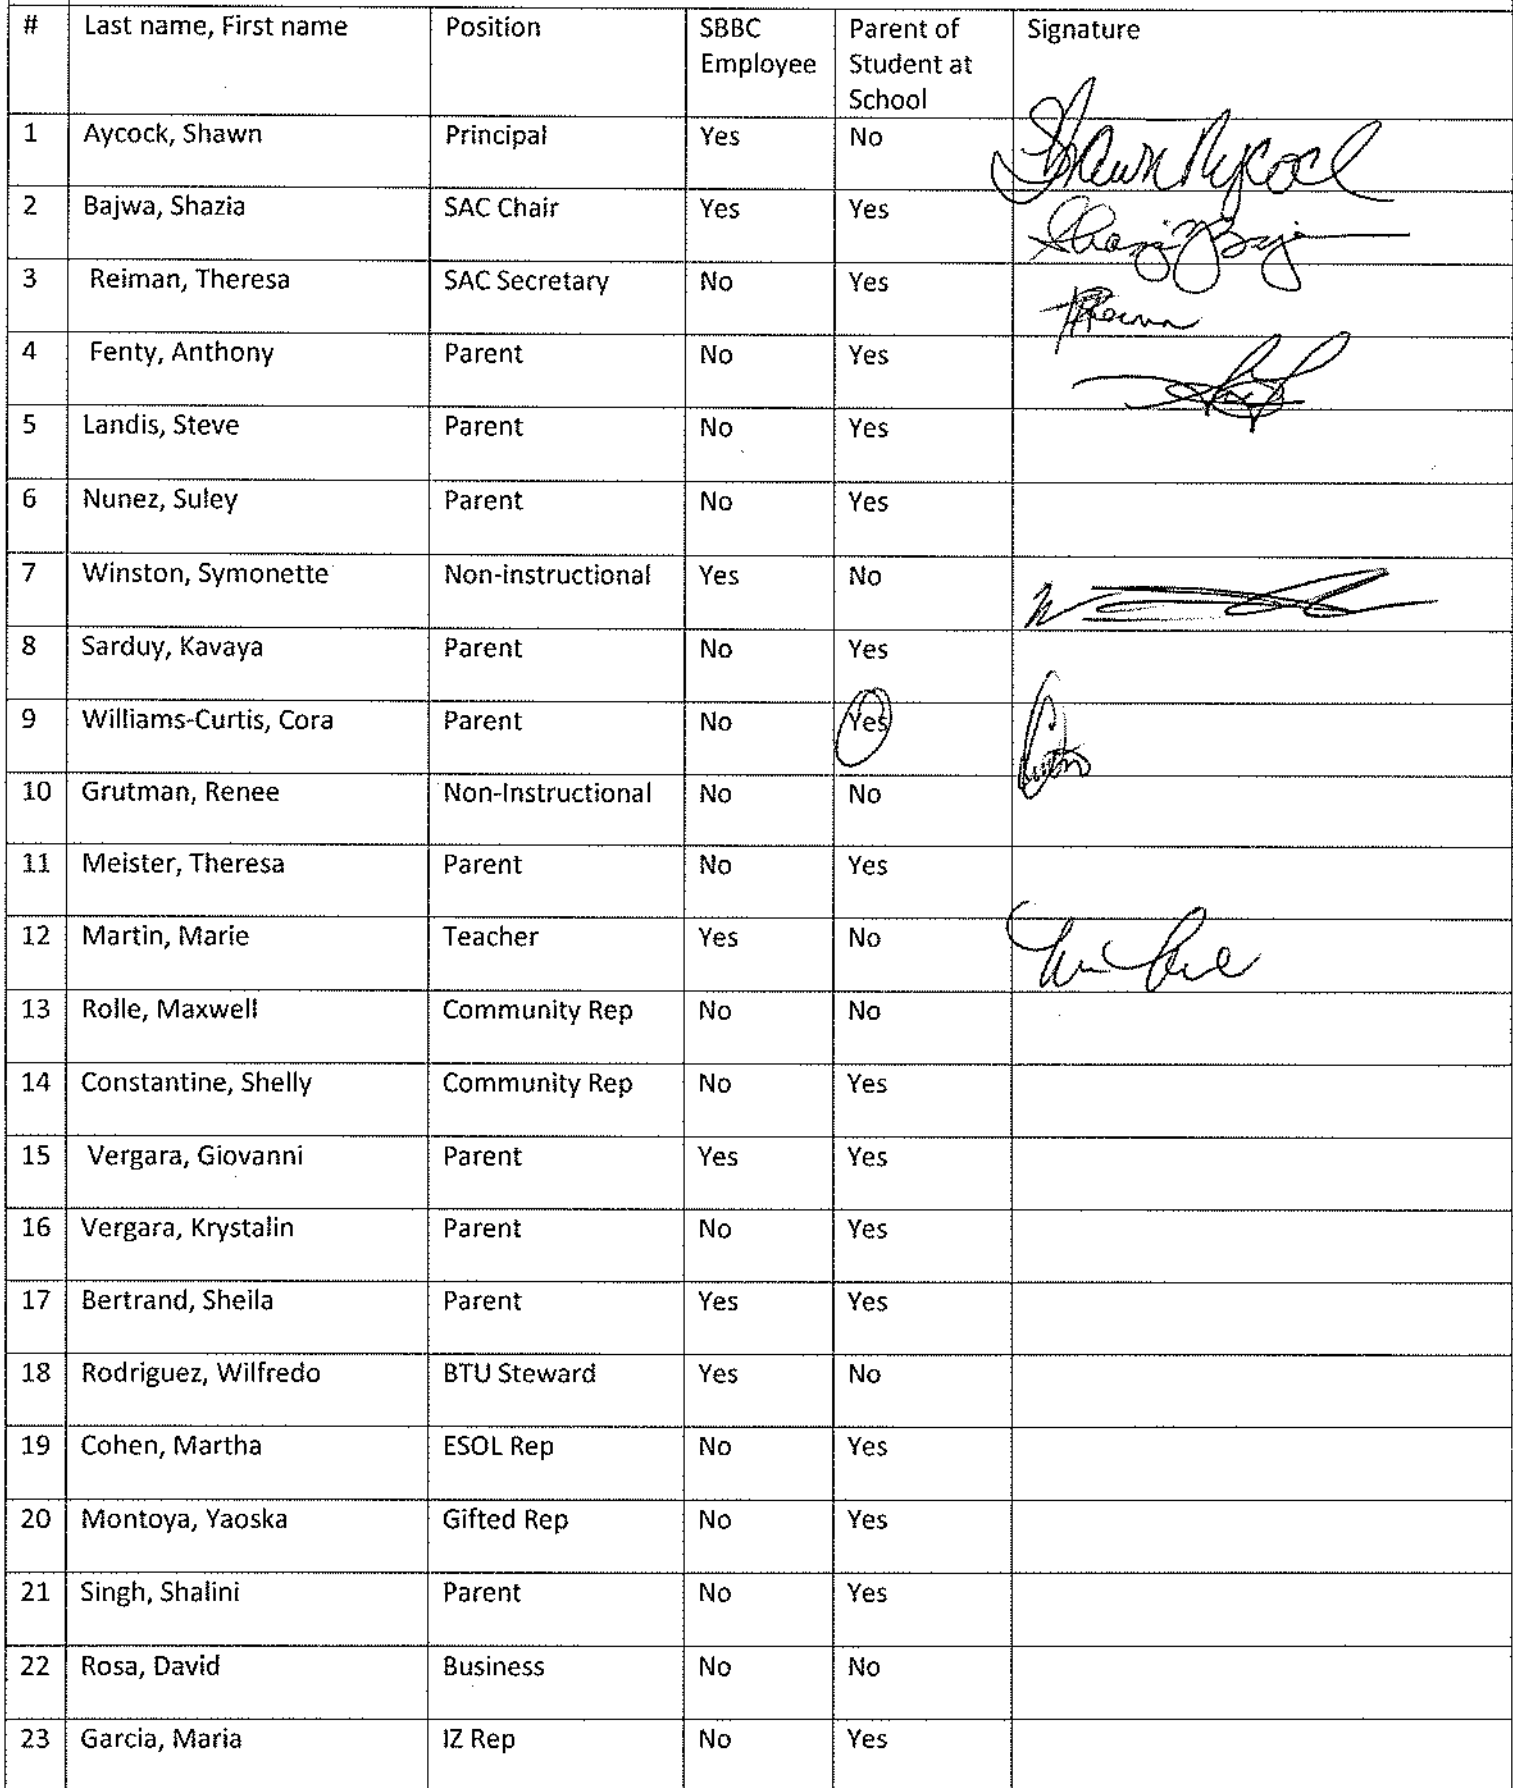 # Last name, First name Position SBBC Employee Parent of Student at School Signature
1 Aycock, Shawn Principal Yes No Shawn Aycock
2 Bajwa, Shazia SAC Chair Yes Yes
3 Reiman, Theresa SAC Secretary No Yes
4 Fenty, Anthony Parent No Yes
5 Landis, Steve Parent No Yes
6 Nunez, Suley Parent No Yes
7 Winston, Symonette Non-instructional Yes No
8 Sarduy, Kavaya Parent No Yes
9 Williams-Curtis, Cora Parent No Yes
10 Grutman, Renee Non-Instructional No No
11 Meister, Theresa Parent No Yes
12 Martin, Marie Teacher Yes No
13 Rolle, Maxwell Community Rep No No
14 Constantine, Shelly Community Rep No Yes
15 Vergara, Giovanni Parent Yes Yes
16 Vergara, Krystalin Parent No Yes
17 Bertrand, Sheila Parent Yes Yes
18 Rodriguez, Wilfredo BTU Steward Yes No
19 Cohen, Martha ESOL Rep No Yes
20 Montoya, Yaoska Gifted Rep No Yes
21 Singh, Shalini Parent No Yes
22 Rosa, David Business No No
23 Garcia, Maria IZ Rep No Yes